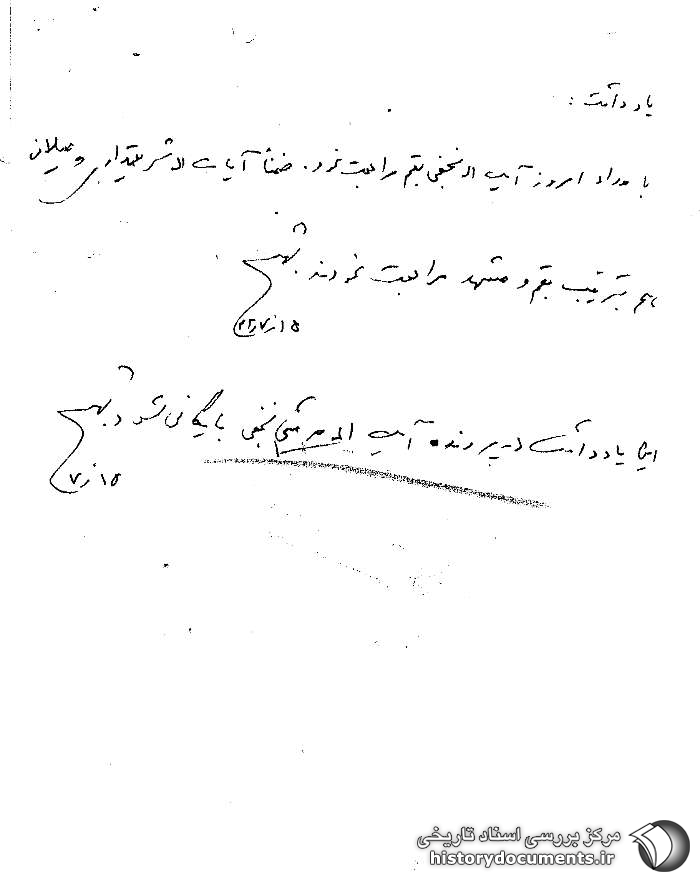 یادداشت :
بامداد امروز آیت اله نجفی بقم مراجعت نمود. ضمناً آیات اله شریعتمداری و میلانی
هم بترتیب بقم و مشهد مراجعت نمودند
۱۵/۷
این یادداشت در پرونده آیت اله مرعشی نجفی بایگانی شود
۱۵/۷
مرکز بررسی اسناد تاریخی
historydocuments.ir